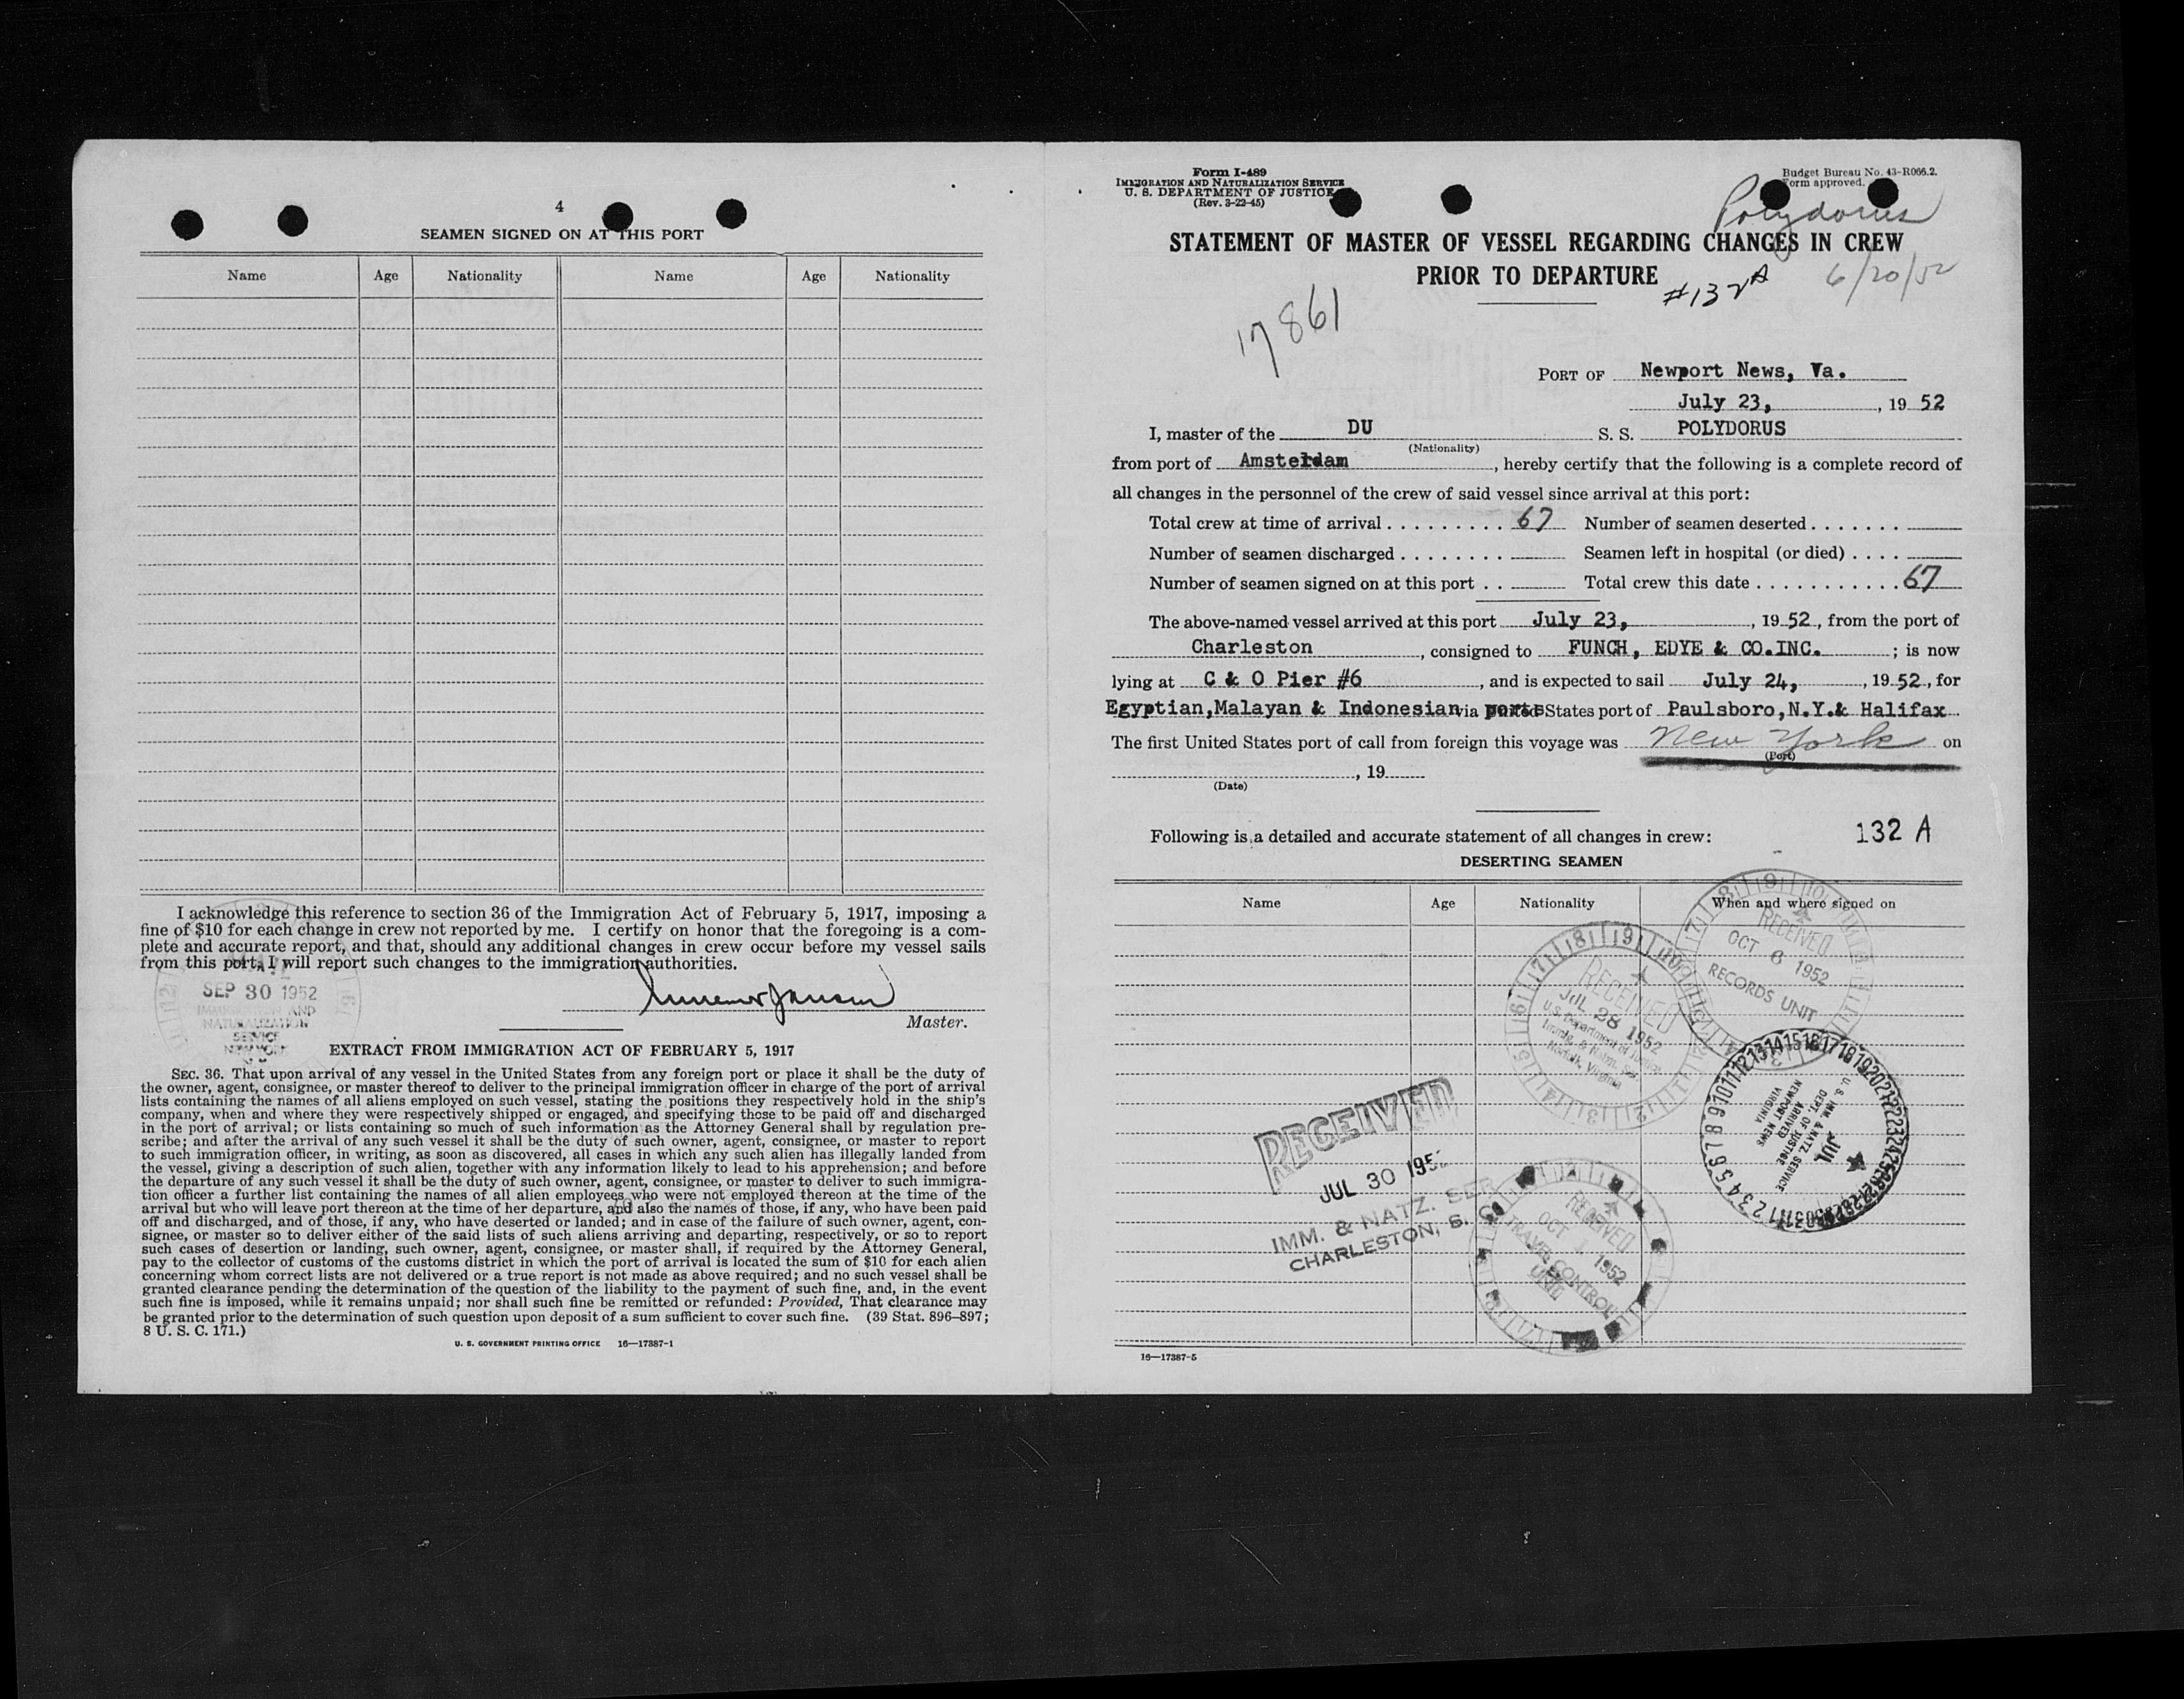 4
SEAMEN SIGNED ON AT THIS PORT
Name Age Nationality Name Age Nationality
I acknowledge this reference to section 36 of the Immigration Act of February 5, 1917, imposing a
fine of $10 for each change in crew not reported by me. I certify on honor that the foregoing is a com-
plete and accurate report, and that, should any additional changes in crew occur before my vessel sails
from this port, I will report such changes to the immigration authorities.
SEP 30 1952
IMMIGRATION AND
NATURALIZATION
SERVICE
NEW YORK
Master.
EXTRACT FROM IMMIGRATION ACT OF FEBRUARY 5, 1917
SEC. 36. That upon arrival of any vessel in the United States from any foreign port or place it shall be the duty of
the owner, agent, consignee, or master thereof to deliver to the principal immigration officer in charge of the port of arrival
lists containing the names of all aliens employed on such vessel, stating the positions they respectively hold in the ship's
company, when and where they were respectively shipped or engaged, and specifying those to be paid off and discharged
in the port of arrival; or lists containing so much of such information as the Attorney General shall by regulation pre-
scribe; and after the arrival of any such vessel it shall be the duty of such owner, agent, consignee, or master to report
to such immigration officer, in writing, as soon as discovered, all cases in which any such alien has illegally landed from
the vessel, giving a description of such alien, together with any information likely to lead to his apprehension; and before
the departure of any such vessel it shall be the duty of such owner, agent, consignee, or master to deliver to such immigra-
tion officer a further list containing the names of all alien employees who were not employed thereon at the time of the
arrival but who will leave port thereon at the time of her departure, and also the names of those, if any, who have been paid
off and discharged, and of those, if any, who have deserted or landed; and in case of the failure of such owner, agent, con-
signee, or master so to deliver either of the said lists of such aliens arriving and departing, respectively, or so to report
such cases of desertion or landing, such owner, agent, consignee, or master shall, if required by the Attorney General,
pay to the collector of customs of the customs district in which the port of arrival is located the sum of $10 for each alien
concerning whom correct lists are not delivered or a true report is not made as above required; and no such vessel shall be
granted clearance pending the determination of the question of the liability to the payment of such fine, and, in the event
such fine is imposed, while it remains unpaid; nor shall such fine be remitted or refunded: Provided, That clearance may
be granted prior to the determination of such question upon deposit of a sum sufficient to cover such fine. (39 Stat. 896–897;
8 U. S. C. 171.)
U. S. GOVERNMENT PRINTING OFFICE 16—17387-1
Form I-489
IMMIGRATION AND NATURALIZATION SERVICE
U. S. DEPARTMENT OF JUSTICE
(Rev. 3-22-45)
Budget Bureau No. 43-R066.2.
Form approved.
Polydorus
STATEMENT OF MASTER OF VESSEL REGARDING CHANGES IN CREW
PRIOR TO DEPARTURE
#132A
6/20/52
17861
PORT OF Newport News, Va.
July 23, , 19 52
I, master of the DU S. S. POLYDORUS
(Nationality)
from port of Amsterdam , hereby certify that the following is a complete record of
all changes in the personnel of the crew of said vessel since arrival at this port:
Total crew at time of arrival . . . . . . . . . 67 Number of seamen deserted . . . . . . .
Number of seamen discharged . . . . . . . . Seamen left in hospital (or died) . . . .
Number of seamen signed on at this port . . Total crew this date . . . . . . . . . . . 67
The above-named vessel arrived at this port July 23, , 19 52, from the port of
Charleston , consigned to FUNCH, EDYE & CO.INC. ; is now
lying at C & O Pier #6 , and is expected to sail July 24, , 19 52, for
Egyptian,Malayan & Indonesian ports via United States port of Paulsboro,N.Y.& Halifax
The first United States port of call from foreign this voyage was New York on
(Port)
, 19
(Date)
Following is a detailed and accurate statement of all changes in crew: 132 A
DESERTING SEAMEN
Name Age Nationality When and where signed on
RECEIVED
OCT 6 1952
RECORDS UNIT
RECEIVED
JUL 28 1952
U.S. Department of Justice
Immig. & Natzn. Ser.
Norfolk, Virginia
U. S. IMM. & NATZ. SERVICE
DEPT. OF JUSTICE
ARRIVED
NEWPORT NEWS
VIRGINIA
JUL
RECEIVED
JUL 30 195
IMM. & NATZ. SER
CHARLESTON, S. C.
RECEIVED
OCT 1952
TRAVEL CONTROL
UNIT
16—17387-5